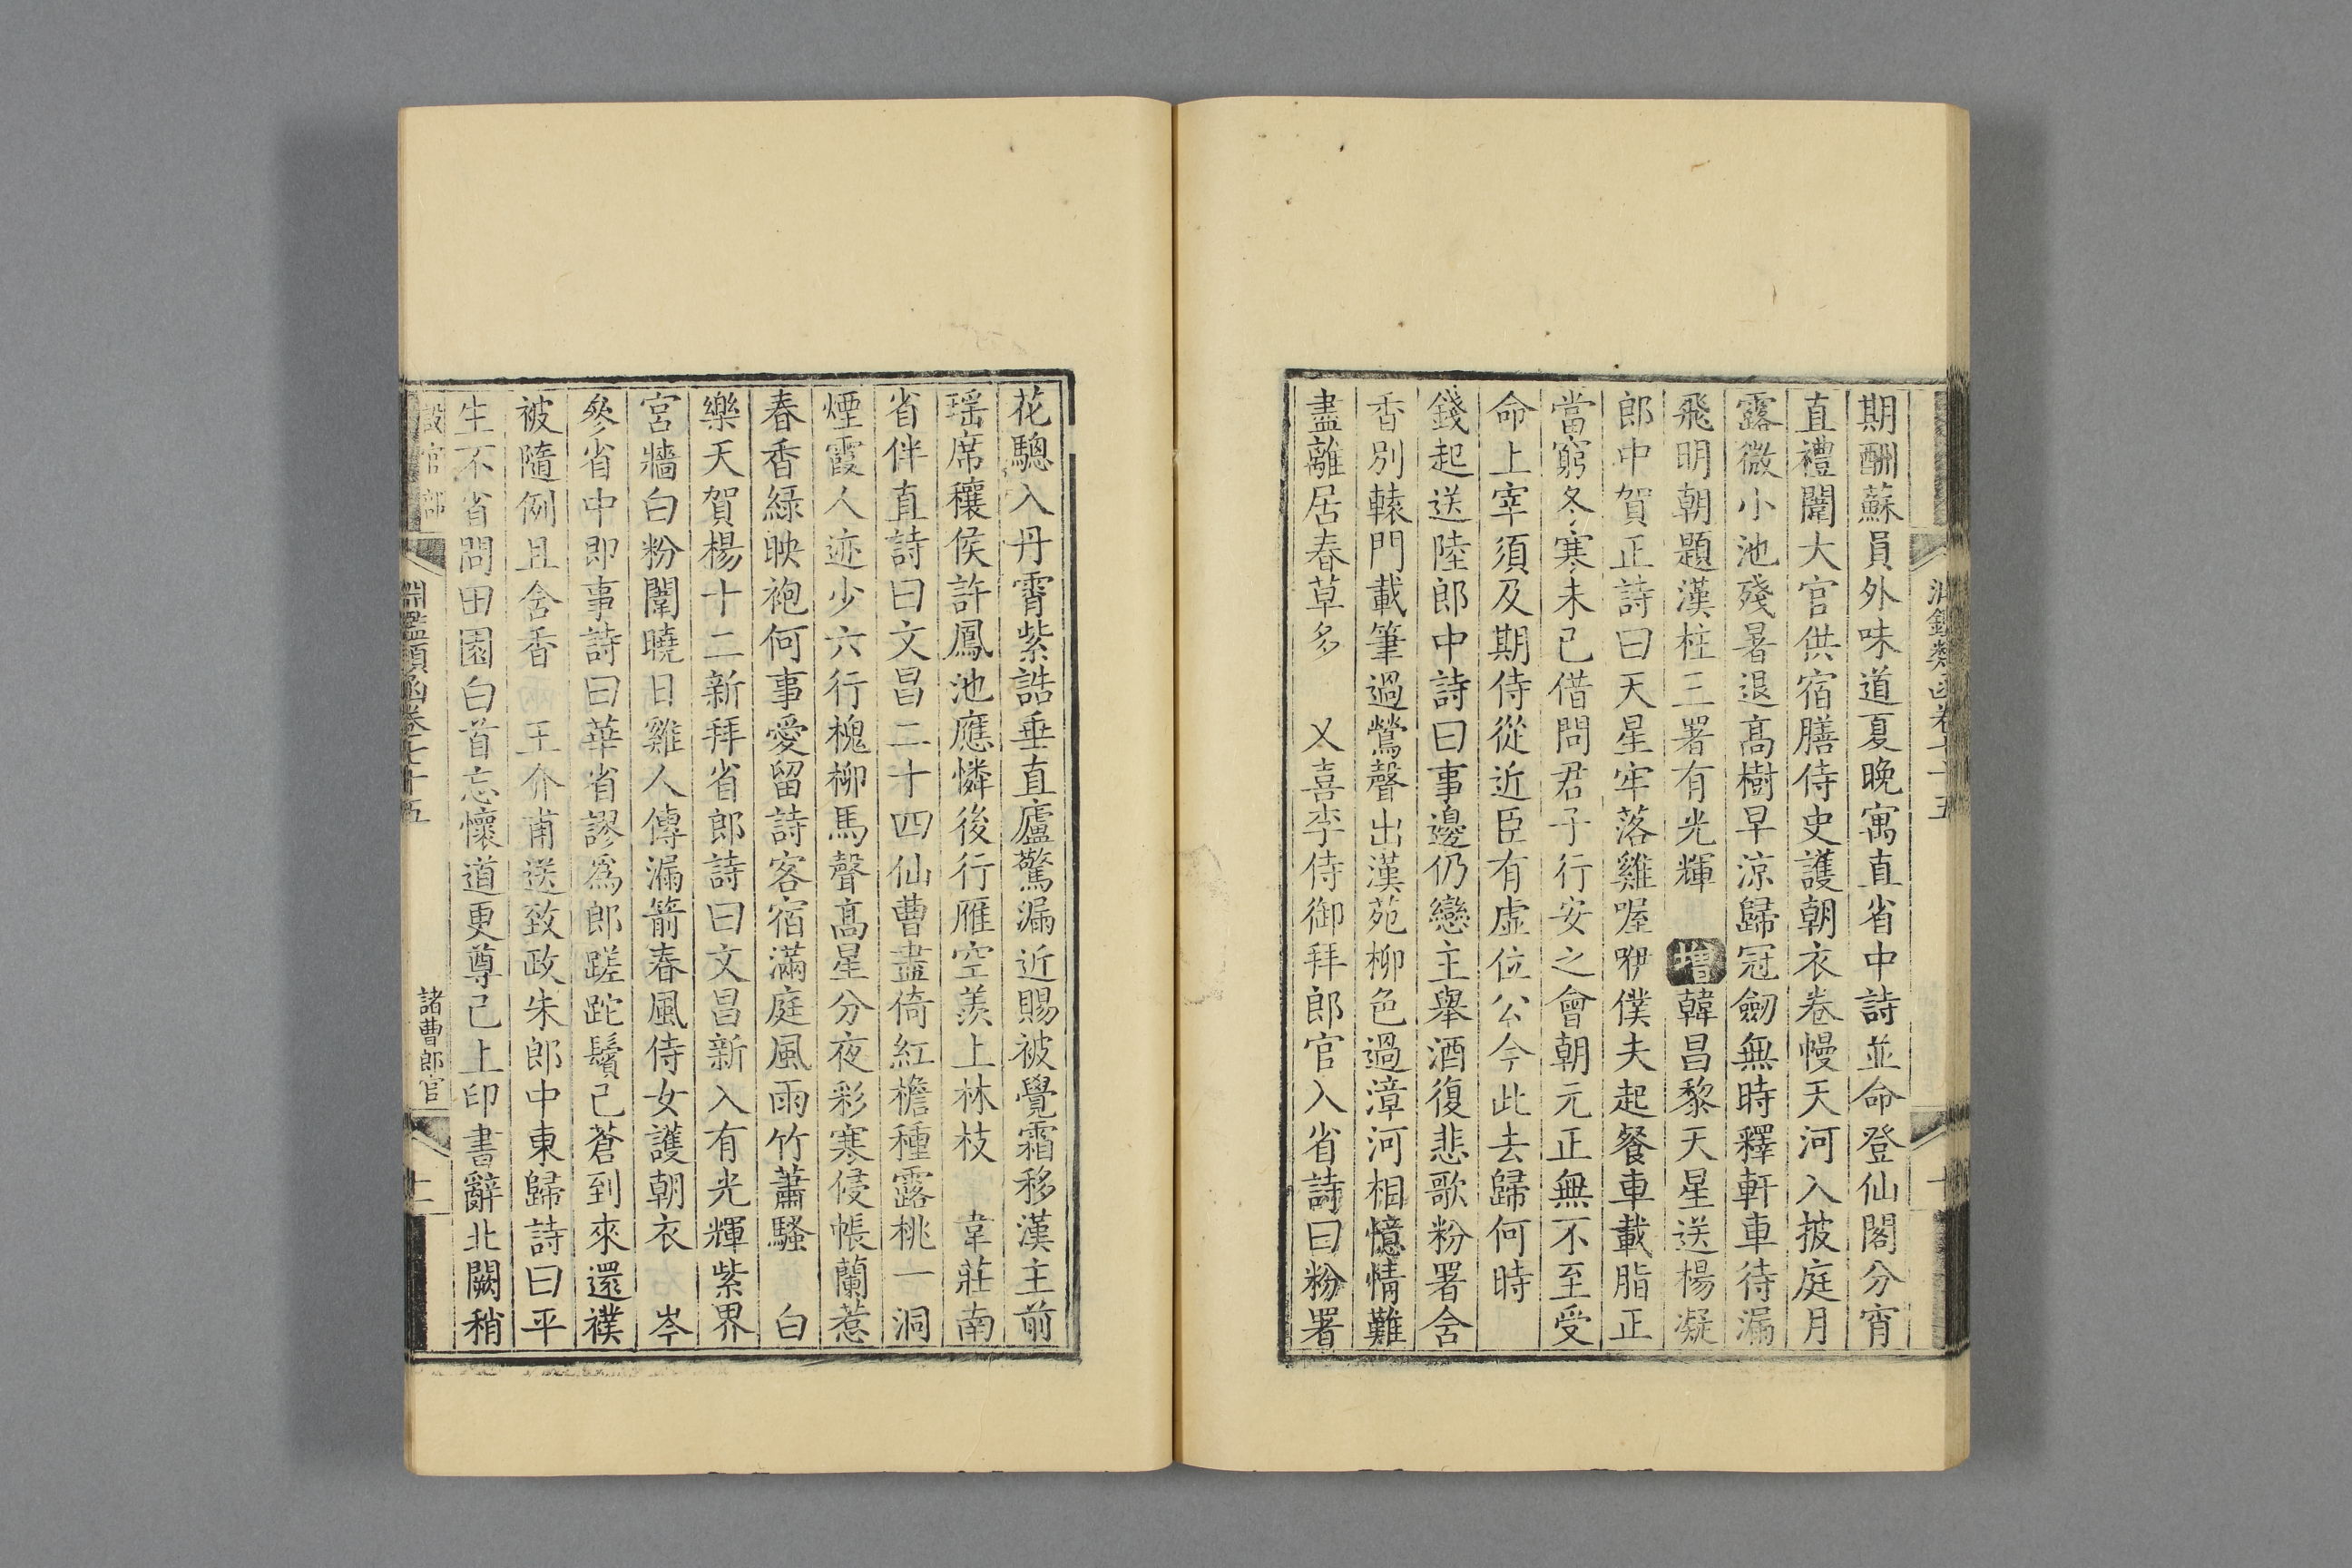 期酬蘇員外味道夏晚寓直省中詩並命登仙閣分宵
直禮闈大官供宿膳侍史護朝衣卷幔天河入披庭月
露微小池殘暑退髙樹早涼歸冠劒無時釋軒車待漏
飛明朝題漢柱三署有光輝 增韓昌黎天星送楊凝
郎中賀正詩曰天星牢落雞喔咿僕夫起餐車載脂正
當窮冬寒未已借問君子行安之會朝元正無不至受
命上宰須及期侍從近臣有虛位公今此去歸何時
錢起送陸郎中詩曰事邊仍戀主舉酒復悲歌粉署含
香別轅門載筆過鶯聲出漢苑柳色過漳河相憶情難
盡離居春草多 又喜李侍御拜郎官入省詩曰粉署
花驄入丹霄紫誥垂直廬驚漏近賜被覺霜移漢主前
瑶席穰侯許鳳池應憐後行雁空羨上林枝 韋莊南
省伴直詩曰文昌二十四仙曹盡倚紅檐種露桃一洞
煙霞人迹少六行槐柳馬聲髙星分夜彩寒侵帳蘭惹
春香綠映袍何事愛留詩客宿滿庭風雨竹蕭騷 白
樂天賀楊十二新拜省郎詩曰文昌新入有光輝紫界
宮牆白粉闈曉日雞人傳漏箭春風侍女護朝衣 岑
參省中即事詩曰華省謬爲郎蹉跎鬢已蒼到來還襆
被隨例且含香 王介甫送致政朱郎中東歸詩曰平
生不省問田園白首忘懷道更尊已上印書辭北闕稍
設官部 淵鑑類函卷七十五 諸曹郎官 十一